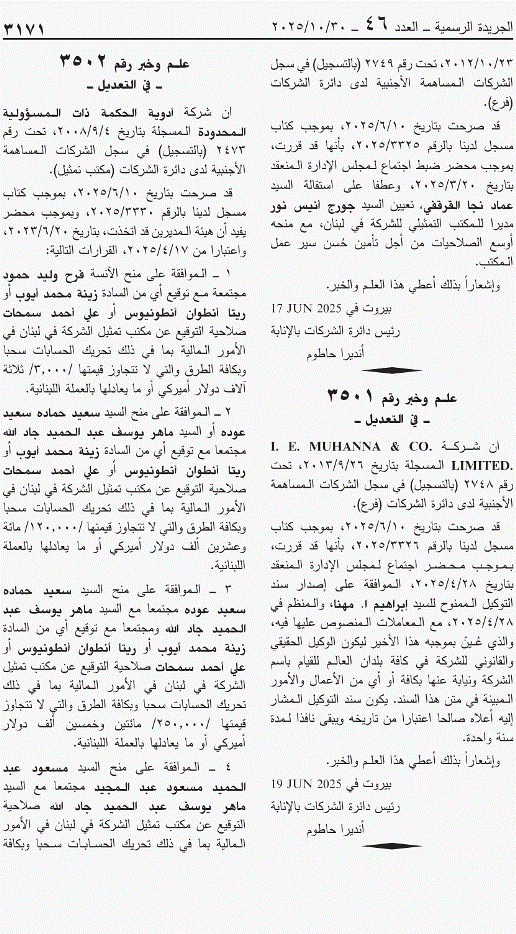 الجريدة الرسمية ـ العدد ٤٦ ـ ٢٠٢٥/١٠/٣٠
٣١٧١
٢٠١٢/١٠/٢٣، تحت رقم ٢٧٤٩ (بالتسجيل) في سجل
الشركات المساهمة الأجنبية لدى دائرة الشركات
(فرع).
قد صرحت بتاريخ ٢٠٢٥/٦/١٠، بموجب كتاب
مسجل لدينا بالرقم ٢٠٢٥/٣٣٢٥، بأنها قد قررت،
بموجب محضر ضبط اجتماع لمجلس الإدارة المنعقد
بتاريخ ٢٠٢٥/٣/٢٠، وعطفا على استقالة السيد
عماد نجا القرقفي، تعيين السيد جورج انيس نور
مديرا للمكتب التمثيلي للشركة في لبنان، مع منحه
أوسع الصلاحيات من أجل تأمين حُسن سير عمل
المكتب.
وإشعاراً بذلك أعطي هذا العلم والخبر.
بيروت في 17 JUN 2025
رئيس دائرة الشركات بالإنابة
أنديرا حاطوم
علم وخبر رقم ٣٥٠١
ـ في التعديل ـ
ان شركة I. E. MUHANNA & CO.
LIMITED. المسجلة بتاريخ ٢٠١٣/٩/٢٦، تحت
رقم ٢٧٤٨ (بالتسجيل) في سجل الشركات المساهمة
الأجنبية لدى دائرة الشركات (فرع).
قد صرحت بتاريخ ٢٠٢٥/٦/١٠، بموجب كتاب
مسجل لدينا بالرقم ٢٠٢٥/٣٣٢٦، بأنها قد قررت،
بموجب محضر اجتماع لمجلس الإدارة المنعقد
بتاريخ ٢٠٢٥/٤/٢٨، الموافقة على إصدار سند
التوكيل الممنوح للسيد إبراهيم ا. مهنا، والمنظم في
٢٠٢٥/٤/٢٨، مع المعاملات المنصوص عليها فيه،
والذي عُيـّن بموجبه هذا الأخير ليكون الوكيل الحقيقي
والقانوني للشركة في كافة بلدان العالم للقيام باسم
الشركة ونيابة عنها بكافة أو أي من الأعمال والأمور
المبينة في متن هذا السند. يكون سند التوكيل المشار
إليه أعلاه صالحا اعتبارا من تاريخه ويبقى نافذا لمدة
سنة واحدة.
وإشعاراً بذلك أعطي هذا العلم والخبر.
بيروت في 19 JUN 2025
رئيس دائرة الشركات بالإنابة
أنديرا حاطوم
علم وخبر رقم ٣٥٠٢
ـ في التعديل ـ
ان شركة أدوية الحكمة ذات المسؤولية
المحدودة المسجلة بتاريخ ٢٠٠٨/٩/٤، تحت رقم
٢٤٧٣ (بالتسجيل) في سجل الشركات المساهمة
الأجنبية لدى دائرة الشركات (مكتب تمثيل).
قد صرحت بتاريخ ٢٠٢٥/٦/١٠، بموجب كتاب
مسجل لدينا بالرقم ٢٠٢٥/٣٣٣٠، وبموجب محضر
يفيد أن هيئة المديرين قد اتخذت، بتاريخ ٢٠٢٣/٦/٢٠،
واعتبارا من ٢٠٢٥/٤/١٧، القرارات التالية:
١ ـ الموافقة على منح الآنسة فرح وليد حمود
مجتمعة مع توقيع أي من السادة زينة محمد أيوب أو
ريتا أنطوان أنطونيوس أو علي أحمد سمحات
صلاحية التوقيع عن مكتب تمثيل الشركة في لبنان في
الأمور المالية بما في ذلك تحريك الحسابات سحبا
وبكافة الطرق والتي لا تتجاوز قيمتها /٣,٠٠٠/ ثلاثة
آلاف دولار أميركي أو ما يعادلها بالعملة اللبنانية.
٢ ـ الموافقة على منح السيد سعيد حماده سعيد
عوده أو السيد ماهر يوسف عبد الحميد جاد الله
مجتمعا مع توقيع أي من السادة زينة محمد أيوب أو
ريتا أنطوان أنطونيوس أو علي أحمد سمحات
صلاحية التوقيع عن مكتب تمثيل الشركة في لبنان في
الأمور المالية بما في ذلك تحريك الحسابات سحبا
وبكافة الطرق والتي لا تتجاوز قيمتها /١٢٠,٠٠٠/ مائة
وعشرين ألف دولار أميركي أو ما يعادلها بالعملة
اللبنانية.
٣ ـ الموافقة على منح السيد سعيد حماده
سعيد عوده مجتمعا مع السيد ماهر يوسف عبد
الحميد جاد الله ومجتمعا مع توقيع أي من السادة
زينة محمد أيوب أو ريتا أنطوان أنطونيوس أو
علي أحمد سمحات صلاحية التوقيع عن مكتب تمثيل
الشركة في لبنان في الأمور المالية بما في ذلك
تحريك الحسابات سحبا وبكافة الطرق والتي لا تتجاوز
قيمتها /٢٥٠,٠٠٠/ مائتين وخمسين ألف دولار
أميركي أو ما يعادلها بالعملة اللبنانية.
٤ ـ الموافقة على منح السيد مسعود عبد
الحميد مسعود عبد المجيد مجتمعا مع السيد
ماهر يوسف عبد الحميد جاد الله صلاحية
التوقيع عن مكتب تمثيل الشركة في لبنان في الأمور
المالية بما في ذلك تحريك الحسابات سحبا وبكافة